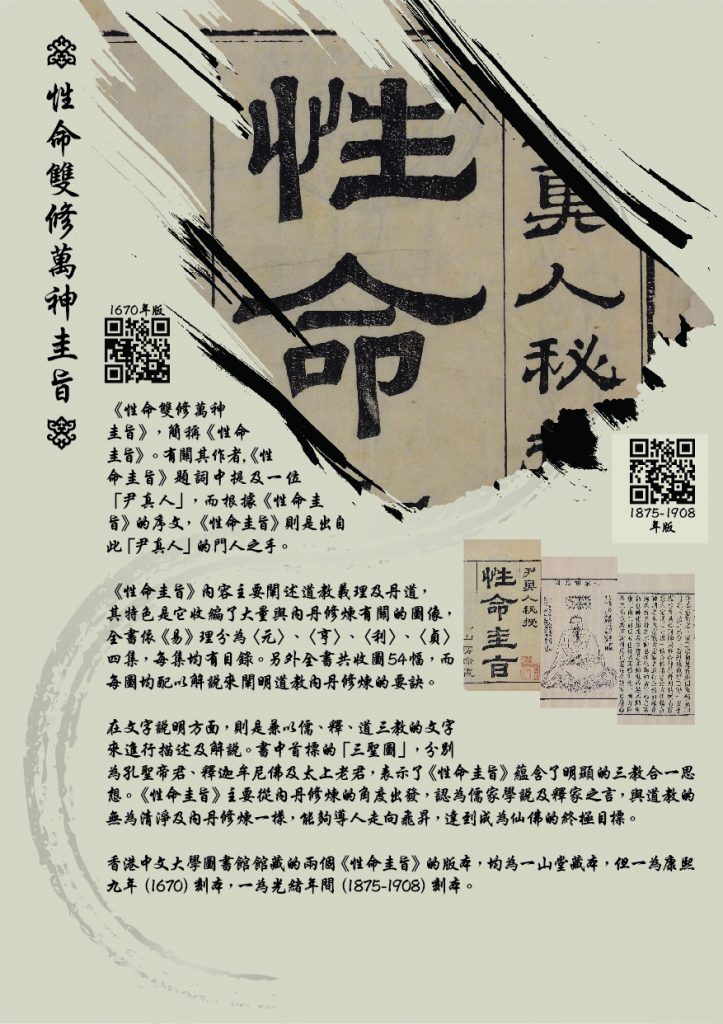 性命雙修萬神圭旨
性命
真人秘
1670年版
《性命雙修萬神
圭旨》，簡稱《性命
圭旨》。有關其作者,《性
命圭旨》題詞中提及一位
「尹真人」，而根據《性命圭
旨》的序文，《性命圭旨》則是出自
此「尹真人」的門人之手。
1875-1908
年版
《性命圭旨》內容主要闡述道教義理及丹道，
其特色是它收編了大量與內丹修煉有關的圖像，
全書依《易》理分為〈元〉、〈亨〉、〈利〉、〈貞〉
四集，每集均有目錄。另外全書共收圖54幅，而
每圖均配以解說來闡明道教內丹修煉的要訣。
尹真人秘授
性命圭旨
在文字說明方面，則是兼以儒、釋、道三教的文字
來進行描述及解說。書中首標的「三聖圖」，分別
為孔聖帝君、釋迦牟尼佛及太上老君，表示了《性命圭旨》蘊含了明顯的三教合一思
想。《性命圭旨》主要從內丹修煉的角度出發，認為儒家學說及釋家之言，與道教的
無為清淨及內丹修煉一樣，能夠導人走向飛昇，達到成為仙佛的終極目標。
香港中文大學圖書館館藏的兩個《性命圭旨》的版本，均為一山堂藏本，但一為康熙
九年 (1670) 刻本，一為光緒年間 (1875-1908) 刻本。